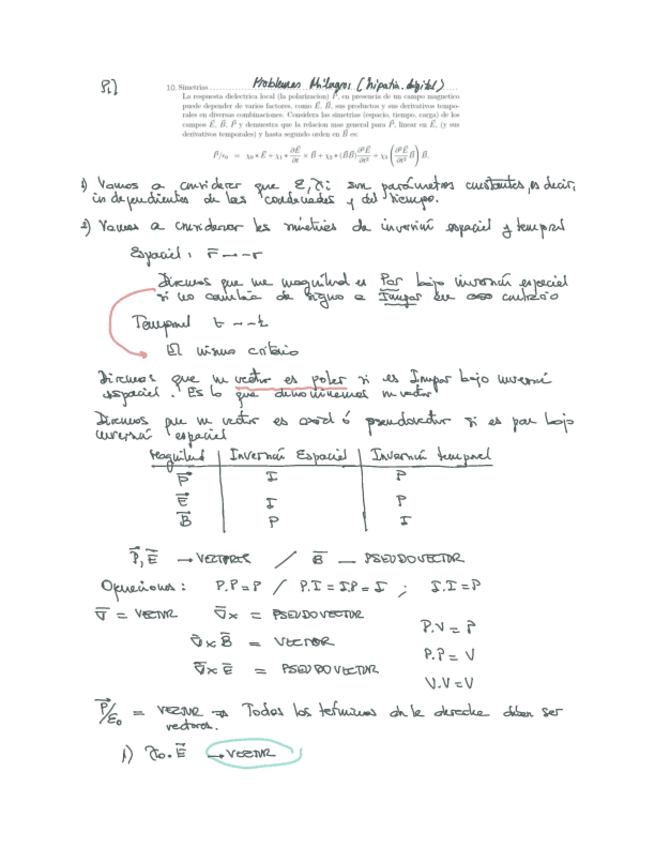 P1]
10. Simetrias Problemas Milagros (hipatia.digital)
La respuesta dielectrica local (la polarizacion) P⃗, en presencia de un campo magnetico
puede depender de varios factores, como E⃗, B⃗, sus productos y sus derivativos tempo-
rales en diversas combinaciones. Considera las simetrias (espacio, tiempo, carga) de los
campos E⃗, B⃗, P⃗ y demuestra que la relacion mas general para P⃗, linear en E⃗, (y sus
derivativos temporales) y hasta segundo orden en B⃗ es:
1) Vamos a considerar que ε, χi son parámetros constantes, es decir,
independientes de las coordenadas y del tiempo.
2) Vamos a considerar las simetrías de inversión espacial y temporal
Espacial: r̄ → -r
Diremos que una magnitud es Par bajo inversión espacial
si no cambia de signo e Impar en caso contrario
Temporal t → -t
El mismo criterio
Diremos que un vector es polar si es Impar bajo inversión
espacial. Es lo que denominemos vector
Diremos que un vector es axial ó pseudovector si es par bajo
inversión espacial
Magnitud | Inversión Espacial | Inversión temporal
P⃗ I P
E⃗ I P
B⃗ P I
P⃗, E⃗ → VECTORES / B̄ — PSEUDOVECTOR
Operaciones: P.P = P / P.I = I.P = I ; I.I = P
∇̄ = VECTOR ∇̄x = PSEUDOVECTOR
P.V = P
∇̄ x B̄ = VECTOR
P.P = V
∇̄ x Ē = PSEUDOVECTOR
V.V = V
P⃗/ε0 = VECTOR ⇒ Todos los terminos de la derecha deben ser
vectores.
1) χ0.E⃗ → VECTOR